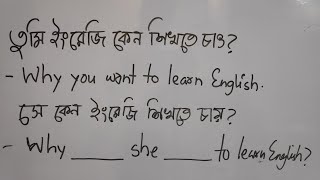 তুমি ইংরেজি কেন শিখতে চাও?
- Why you want to learn English.
সে কেন ইংরেজি শিখতে চায়?
- Why ____ she ____ to learn English?